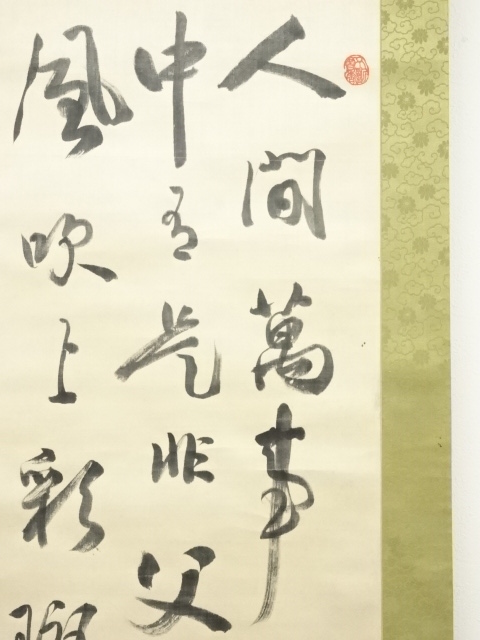 人間萬事
中有是非父
風吹上彩